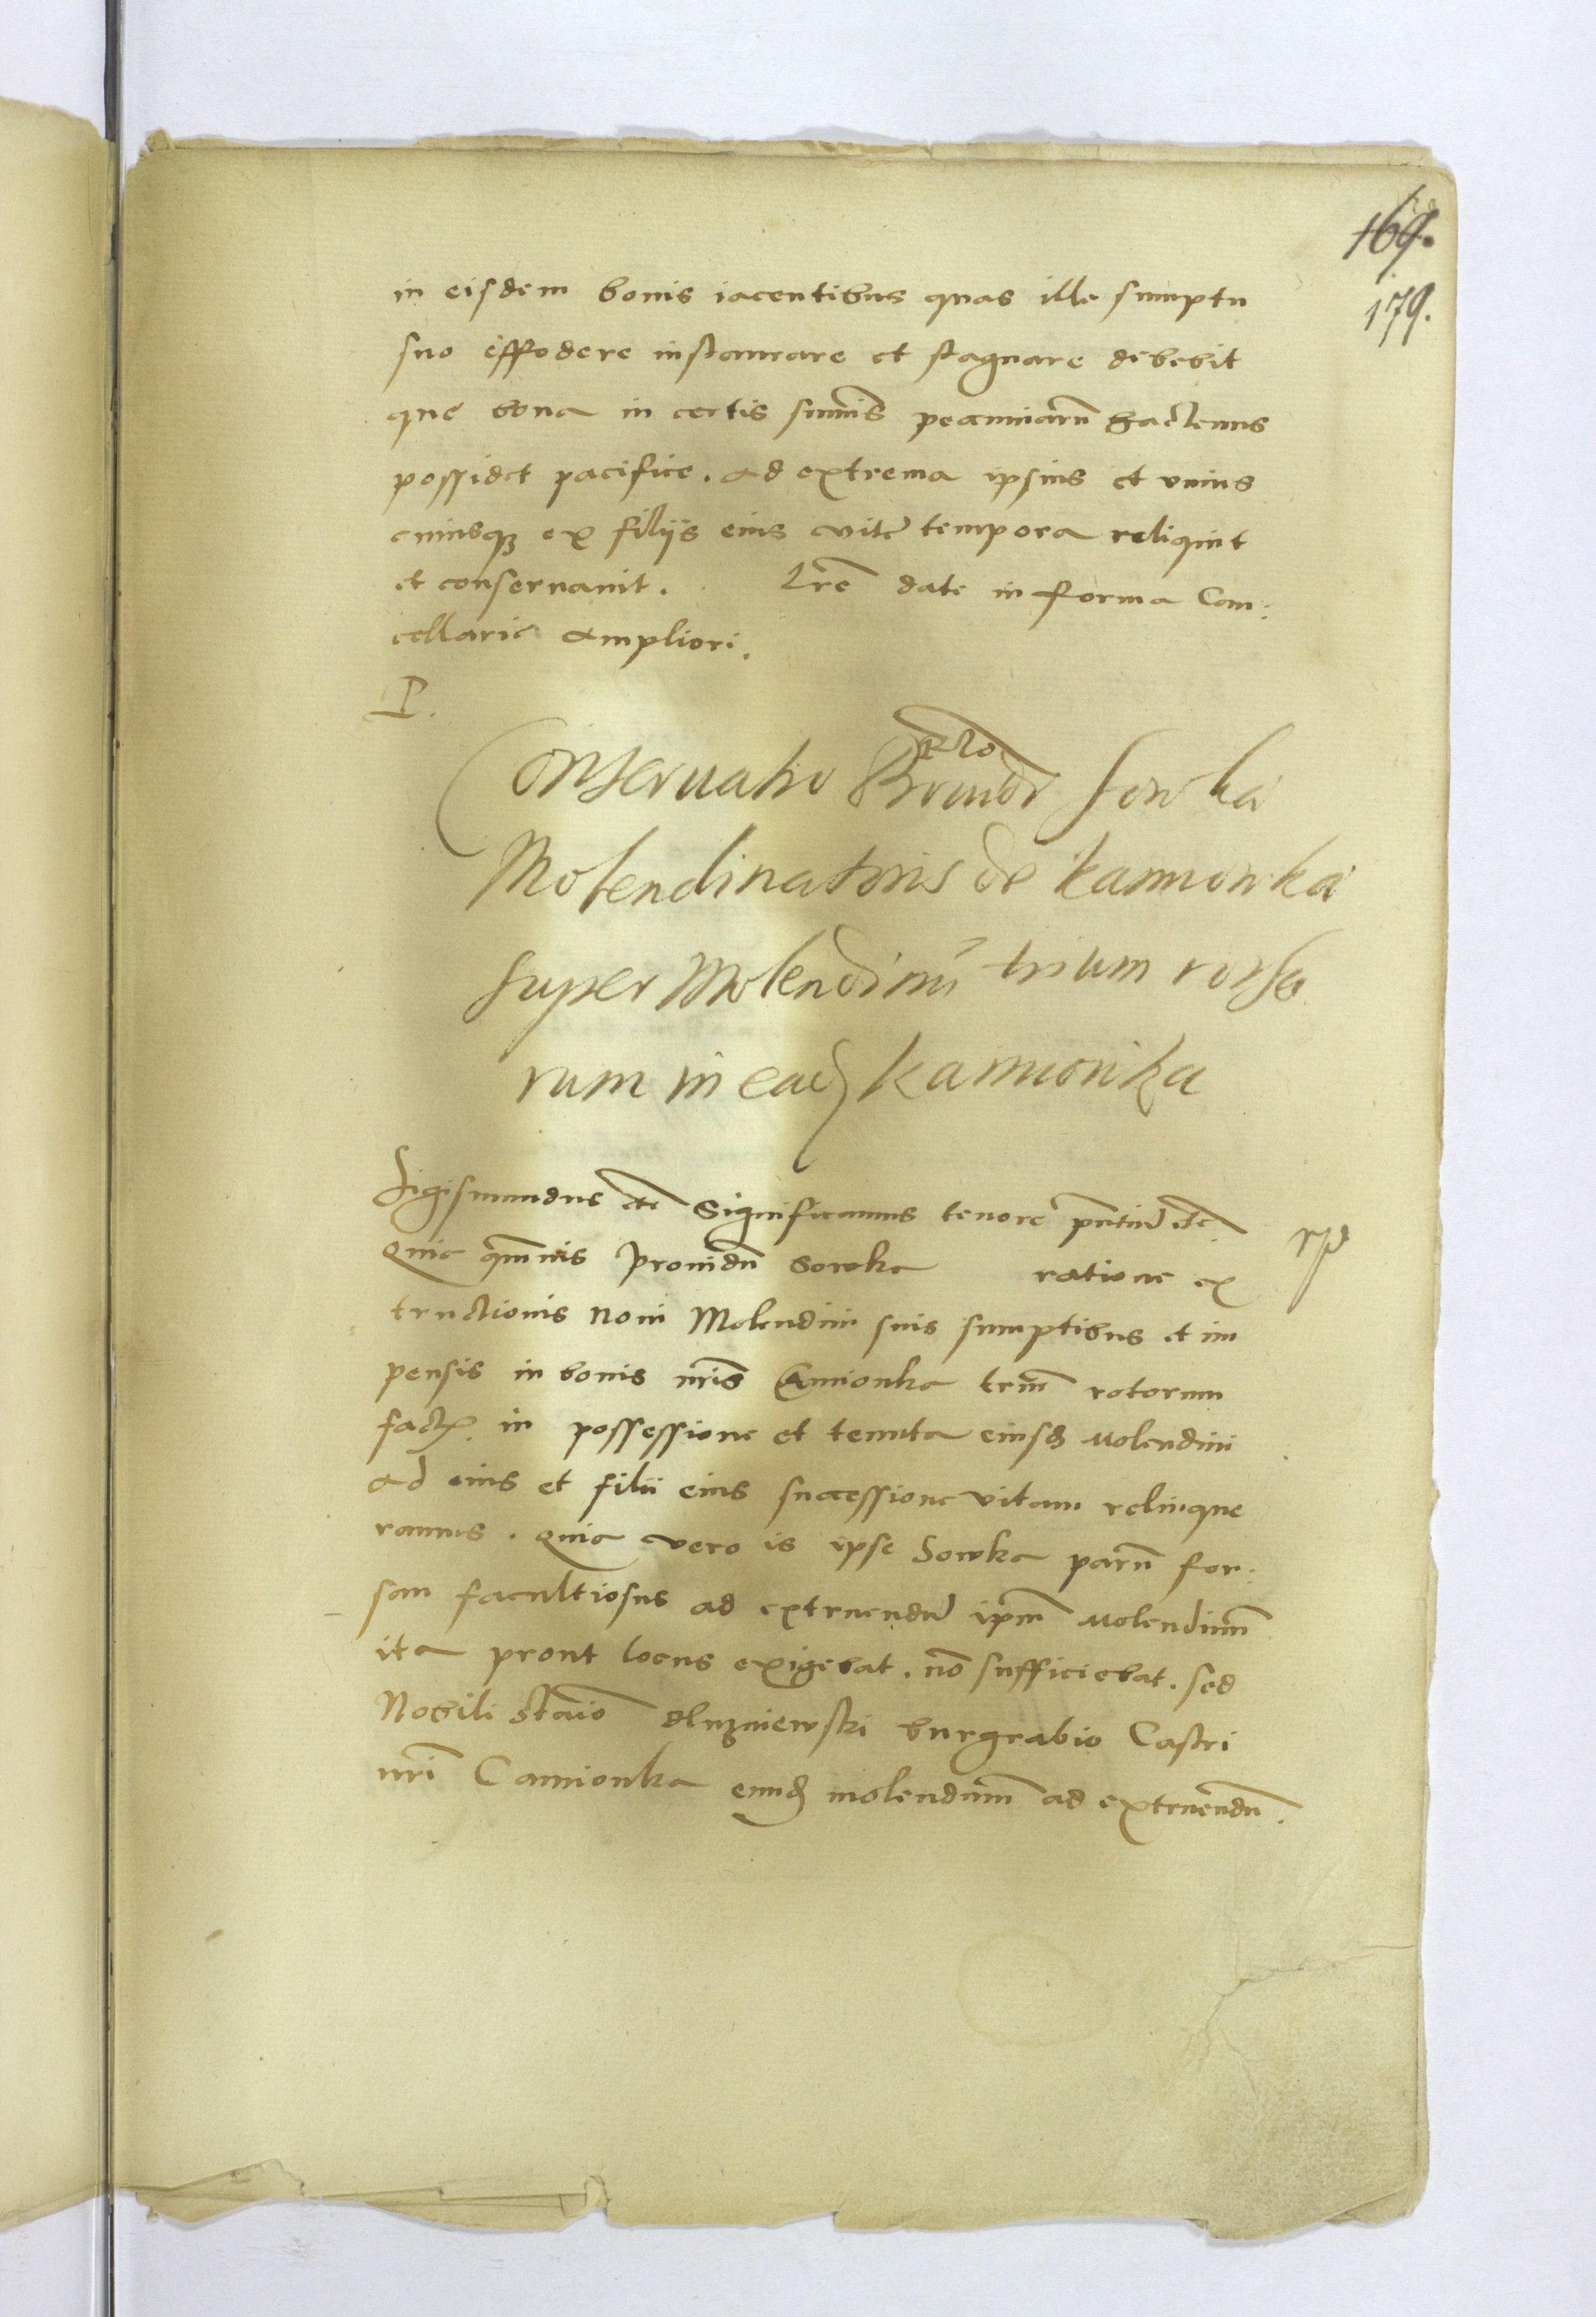 169.
179.
in eisdem bonis iacentibus quas ille sumptu
suo effodere instaurare et stagnare debebit
que bona in certis sum̄is pecuniarū hactenus
possidet pacifice. ad extrema ipsius et vnius
cuiusqꝫ ex filijs eius vite tempora reliquit
et conseruauit. Lr̄e date in forma Can:
cellarie ampliori.
P.
Conseruatio Sowka
Molendinatoris de kamionka
super Molendinū trium rotha
rum in eadꝫ kamionka
Sigismundus etc̄ Significamus tenore pn̄tiū etc̄.
Quia qm̄uis Prouidū Sowka ratione ex
tructionis noui Molendini suis sumptibus et im
pensis in bonis nr̄is Camionka triū rotorum
fact in possessione et tenuta eiusdꝫ Molendini
ad eius et filii eius successione vitam relinque
ramus. Quia vero is ipse Sowka parū for:
san facultiosus ad extruendū ipm̄ Molendinū
ita prout locus exigebat. nō sufficiebat. sed
Nobili Stānio Oluzniewski burgrabio Castri
nr̄i Camionka eundꝫ molendinū ad extruendū.